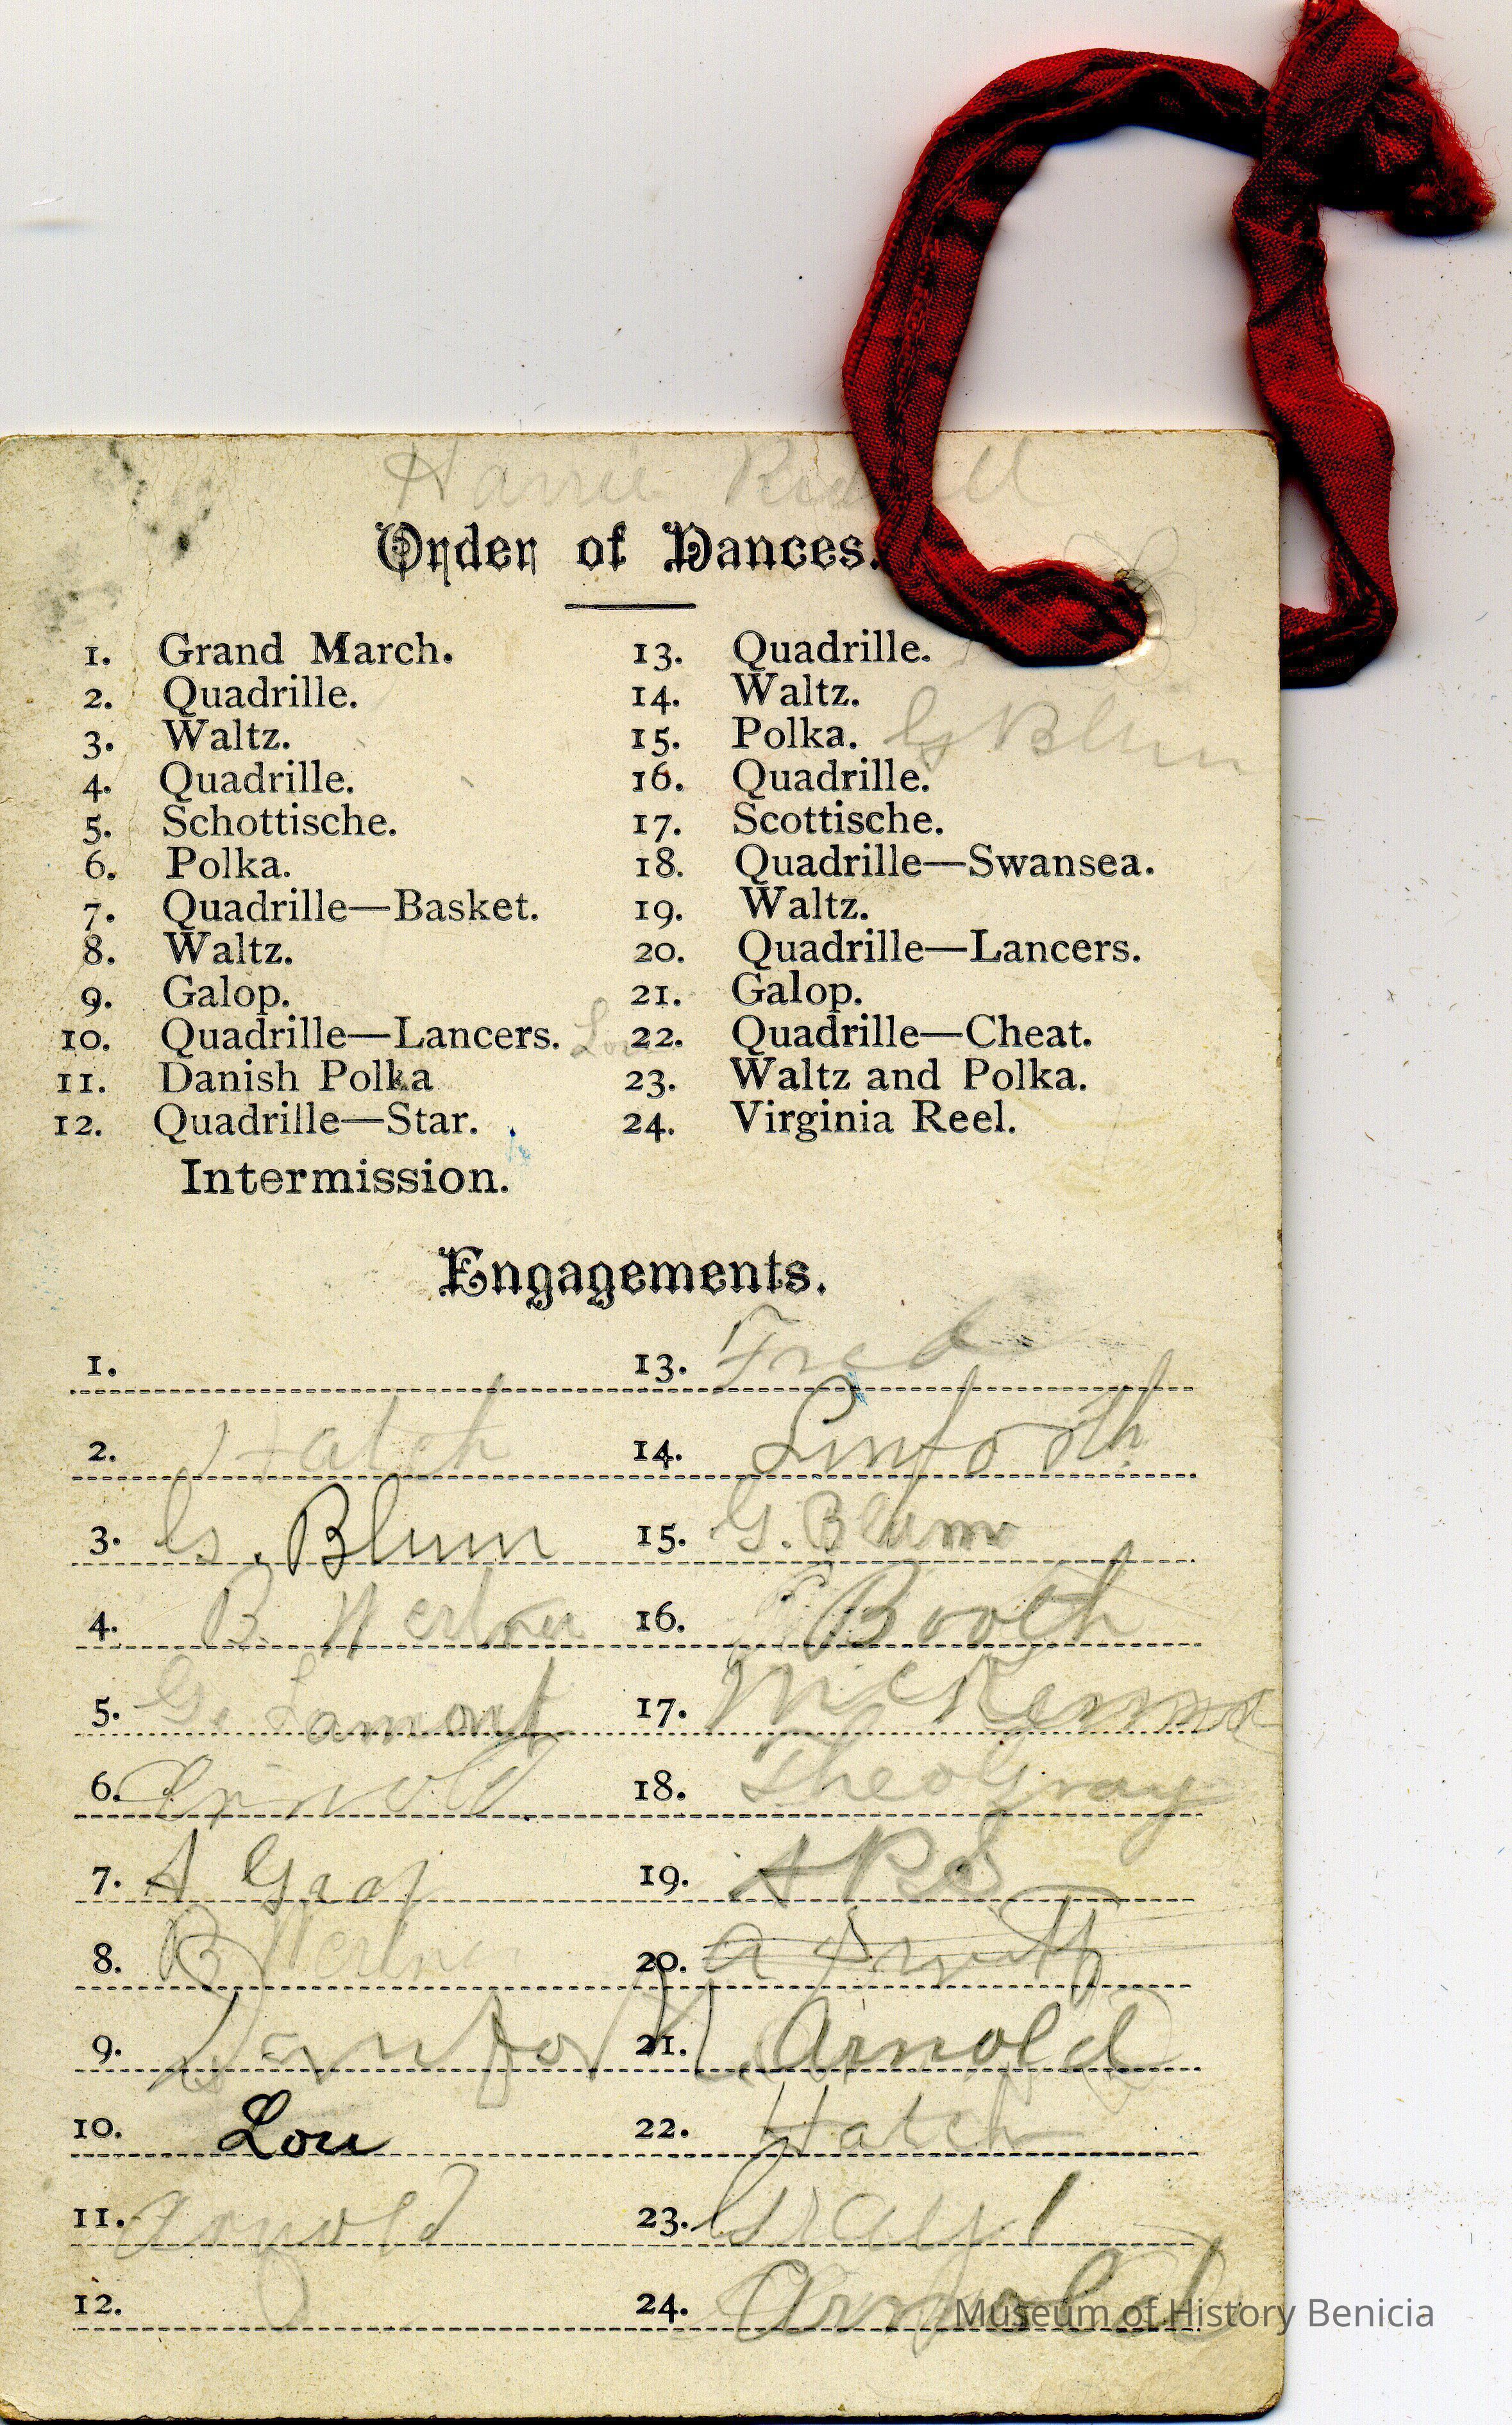 Order of Dances.
1. Grand March.
2. Quadrille.
3. Waltz.
4. Quadrille.
5. Schottische.
6. Polka.
7. Quadrille—Basket.
8. Waltz.
9. Galop.
10. Quadrille—Lancers. Lou
11. Danish Polka
12. Quadrille—Star.
Intermission.
13. Quadrille.
14. Waltz.
15. Polka. G Blum
16. Quadrille.
17. Scottische.
18. Quadrille—Swansea.
19. Waltz.
20. Quadrille—Lancers.
21. Galop.
22. Quadrille—Cheat.
23. Waltz and Polka.
24. Virginia Reel.
Engagements.
1.
2. Hatch
3. G. Blum
4. B.
5. G. Lamont
6.
7. A
8. B
9.
10. Lou
11. Arnold
12.
13. Fred
14. Linforth
15. G. Blum
16. Booth
17. McKenna
18. Theo Gray
19.
20. A
21. Arnold
22. Hatch
23. Gray
24. Arnold
Museum of History Benicia